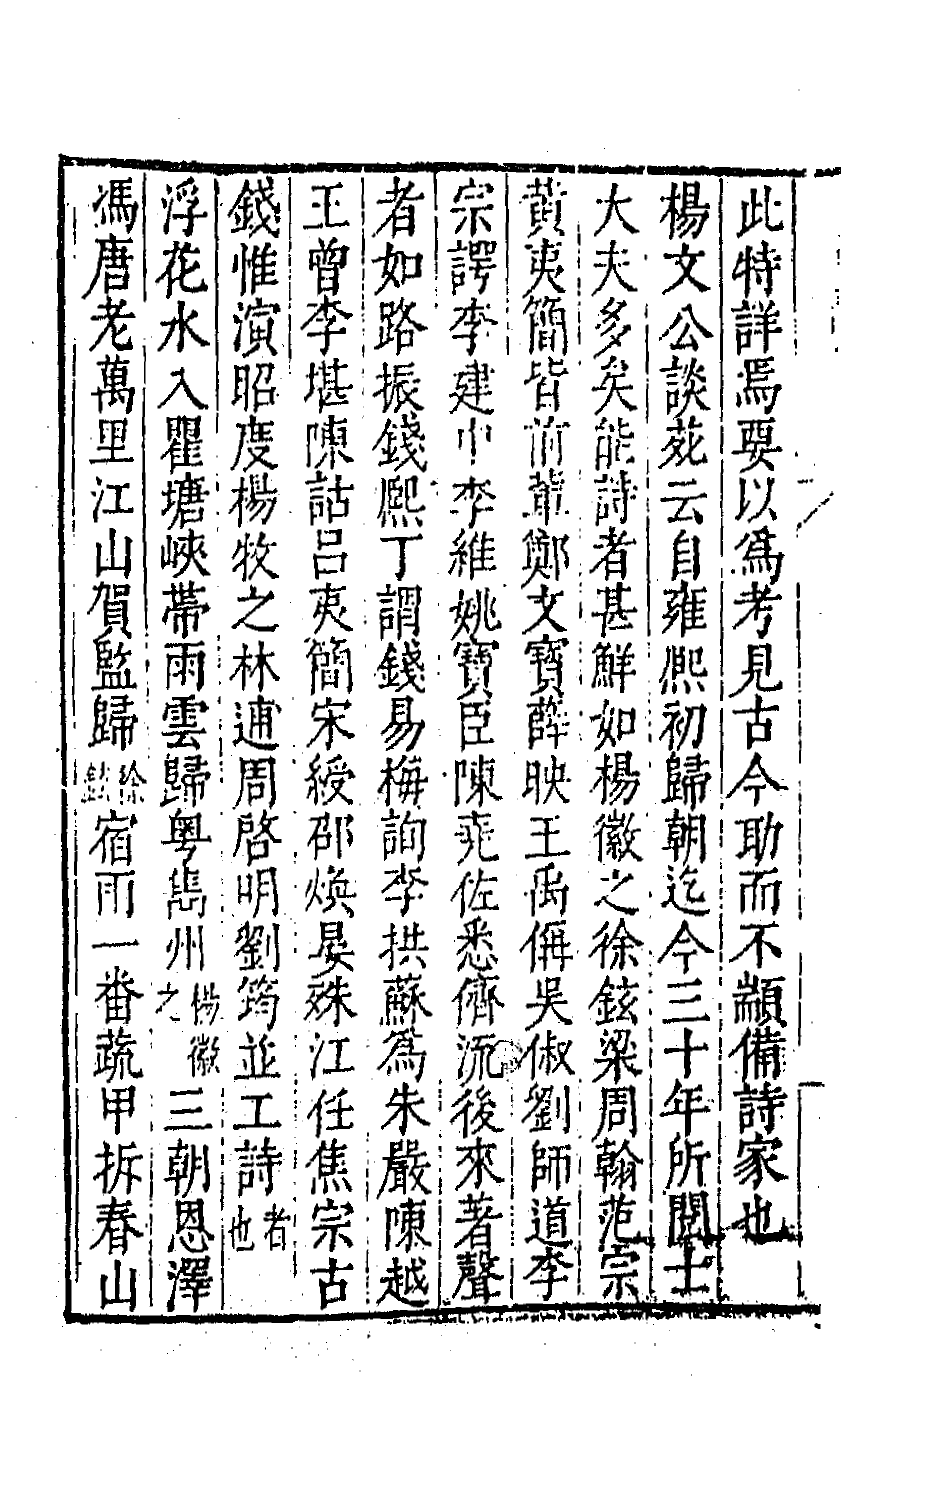 此特詳焉要以爲考見古今助而不顓備詩家也
楊文公談苑云自雍熙初歸朝迄今三十年所閱士
大夫多矣能詩者甚鮮如楊徽之徐鉉梁周翰范宗
黃夷簡皆前輩鄭文寶薛映王禹偁吳俶劉師道李
宗諤李建中李維姚寶臣陳堯佐悉儕流後來著聲
者如路振錢熙丁謂錢易梅詢李拱蘇爲朱嚴陳越
王曾李堪陳詁呂夷簡宋綬邵煥晏殊江任焦宗古
錢惟演昭度楊牧之林逋周啓明劉筠並工詩者也
浮花水入瞿塘峽帶雨雲歸粤嶲州楊徽之三朝恩澤
馮唐老萬里江山賀監歸徐鉉宿雨一番蔬甲拆春山